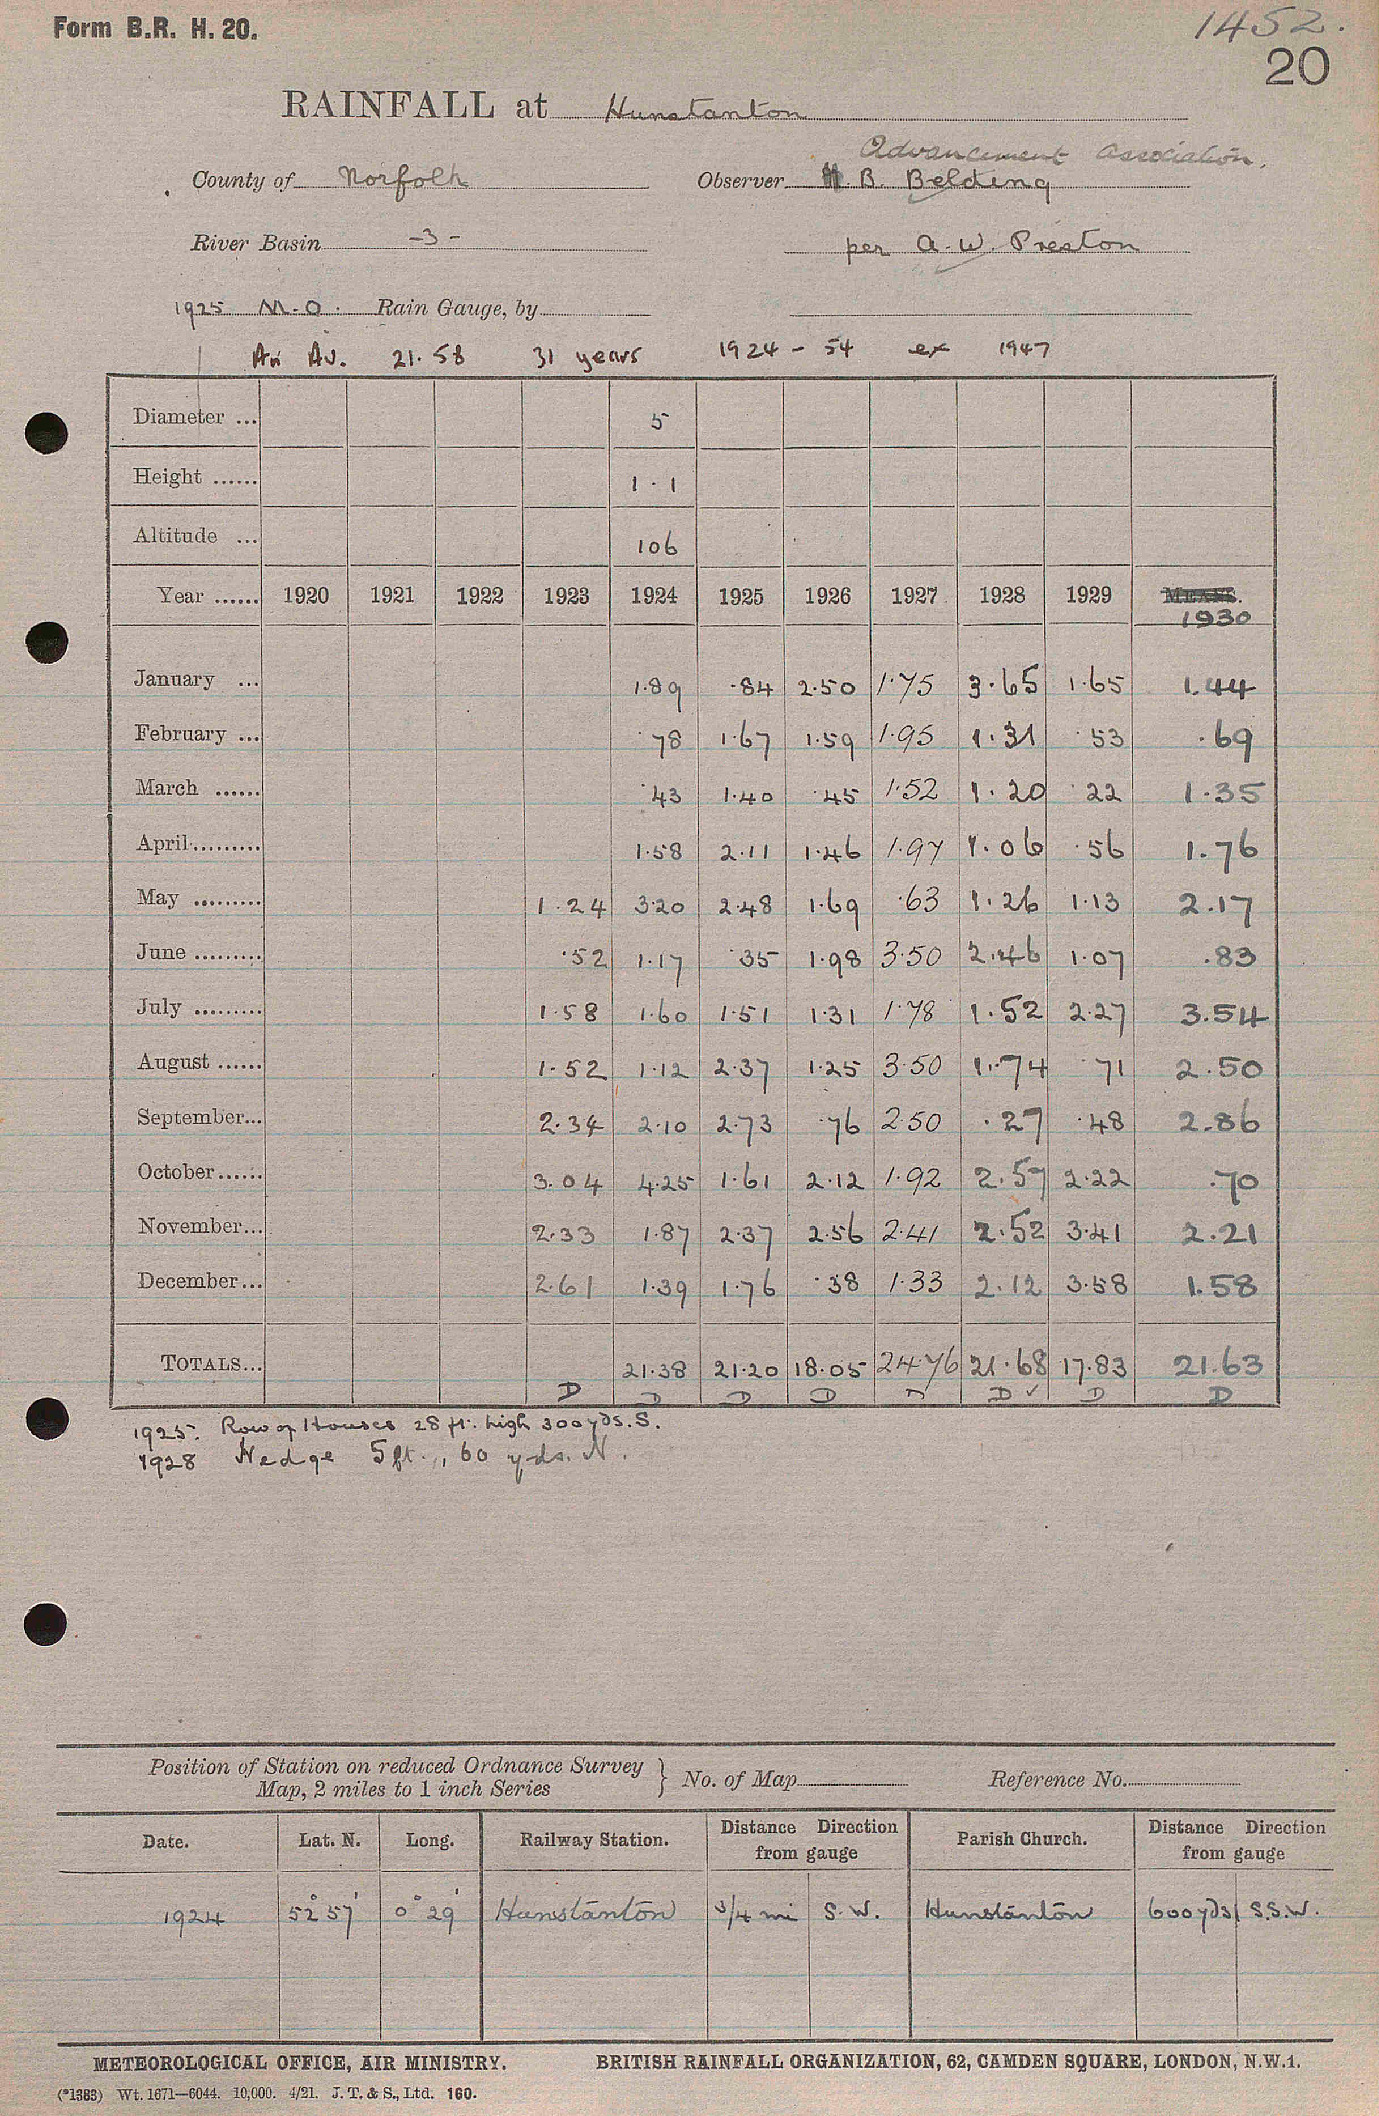 Form B.R. H. 20.
1452.
20
RAINFALL at Hunstanton
Advancement Association.
County of Norfolk Observer H. B. Belding
River Basin -3- per A. W. Preston
1925 M.O. Rain Gauge, by
An Av. 21.58 31 years 1924 - 54 ex 1947
Diameter ... 5
Height ...... 1.1
Altitude ... 106
Year ...... 1920 1921 1922 1923 1924 1925 1926 1927 1928 1929 MEANS.
1930
January ... 1.89 .84 2.50 1.75 3.65 1.65 1.44
February ... .78 1.67 1.59 1.95 1.31 .53 .69
March ...... .43 1.40 .45 1.52 1.20 .22 1.35
April ......... 1.58 2.11 1.46 1.97 1.06 .56 1.76
May ......... 1.24 3.20 2.48 1.69 .63 1.26 1.13 2.17
June ......... .52 1.17 .35 1.98 3.50 2.46 1.07 .83
July ......... 1.58 1.60 1.51 1.31 1.78 1.52 2.27 3.54
August ...... 1.52 1.12 2.37 1.25 3.50 1.74 .71 2.50
September... 2.34 2.10 2.73 .76 2.50 .27 .48 2.86
October...... 3.04 4.25 1.61 2.12 1.92 2.57 2.22 .70
November... 2.33 1.87 2.37 2.56 2.41 2.52 3.41 2.21
December... 2.61 1.39 1.76 .38 1.33 2.12 3.58 1.58
TOTALS... 21.38 21.20 18.05 24.76 21.68 17.83 21.63
D D D D D D ✓ D D
1925. Row of Houses 28 ft. high 300 yds. S.
1928 Hedge 5 ft., 60 yds. N.
Position of Station on reduced Ordnance Survey
Map, 2 miles to 1 inch Series } No. of Map Reference No.
Date. Lat. N. Long. Railway Station. Distance Direction from gauge Parish Church. Distance Direction from gauge
1924 52° 57' 0° 29' Hunstanton 3/4 mi S.W. Hunstanton 600 yds S.S.W.
METEOROLOGICAL OFFICE, AIR MINISTRY. BRITISH RAINFALL ORGANIZATION, 62, CAMDEN SQUARE, LONDON, N.W.1.
(*1383) Wt. 1671—6044. 10,000. 4/21. J. T. & S., Ltd. 160.